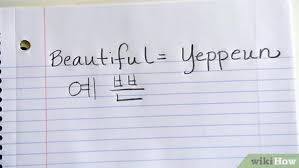 Beautiful = Yeppeun
예쁜
wikiHow